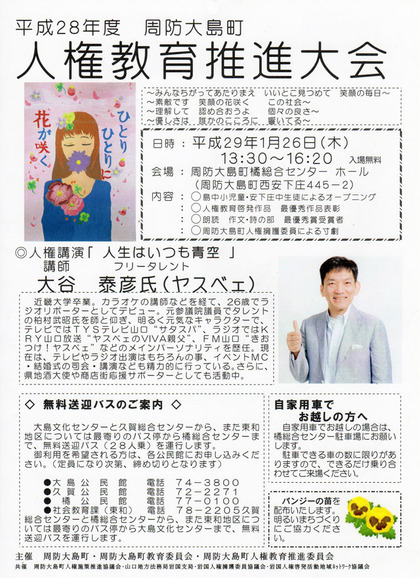 平成28年度　周防大島町
人権教育推進大会
ひとり
ひとりに
花が咲く
～みんなちがってあたりまえ　いいとこ見つめて　笑顔の毎日～
～素敵です　笑顔の花咲く　この社会～
～理解して　認め合おうよ　個々の良さ～
～優しさは　誰かのこころに　響いてる～
日時：平成29年1月26日(木)
13:30～16:20　入場無料
会場：周防大島町橘総合センター　ホール
(周防大島町西安下庄445－2)
内容：○島中小児童・安下庄中生徒によるオープニング
○人権教育啓発作品　最優秀作品表彰
○朗読　作文・詩の部　最優秀賞受賞者
○周防大島町人権擁護委員による寸劇
◎人権講演「 人生はいつも青空 」
講師　フリータレント
大谷　泰彦氏(ヤスベェ)
近畿大学卒業。カラオケの講師などを経て、26歳でラ
ジオリポーターとしてデビュー。元参議院議員でタレント
の柏村武昭氏を師と仰ぎ、明るく元気なキャラクターで、
テレビではTYSテレビ山口“サタスパ”、ラジオではK
RY山口放送“ヤスベェのVIVA親父”、FM山口“きお
つけ！ヤスベェ”などのメインパーソナリティを歴任。現
在は、テレビやラジオ出演はもちろんの事、イベントMC
・結婚式の司会・講演なども精力的に行っている。さらに、
県地酒大使や商店街応援サポーターとしても活動中。
◇ 無料送迎バスのご案内 ◇
大島文化センターと久賀総合センターから、また東和
地区については最寄りのバス停から橘総合センターま
で、無料送迎バス（28人乗）を運行します。
御利用を希望される方は、各公民館にお申し込みくだ
さい。（定員になり次第、締め切りとなります）
●大島公民館　電話　74－3800
●久賀公民館　電話　72－2271
●橘公民館　電話　77－0100
●社会教育課（東和）　電話　78－2205久賀
総合センターと橘総合センターから、また東和地区につ
いては最寄りのバス停から大島文化センターまで、無料
送迎バスを運行します。
自家用車で
お越しの方へ
自家用車でお越しの場合は、
橘総合センター駐車場にお願い
します。
駐車できる車の数に限りがあ
りますので、できるだけ乗り合
わせてご来場ください。
パンジーの苗を
配布いたします。
明るいまちづくり
にご協力くださ
い。
主催　周防大島町・周防大島町教育委員会・周防大島町人権教育推進委員会
共催　周防大島町人権施策推進協議会・山口地方法務局岩国支局・岩国人権擁護委員協議会・岩国人権啓発活動地域ネットワーク協議会